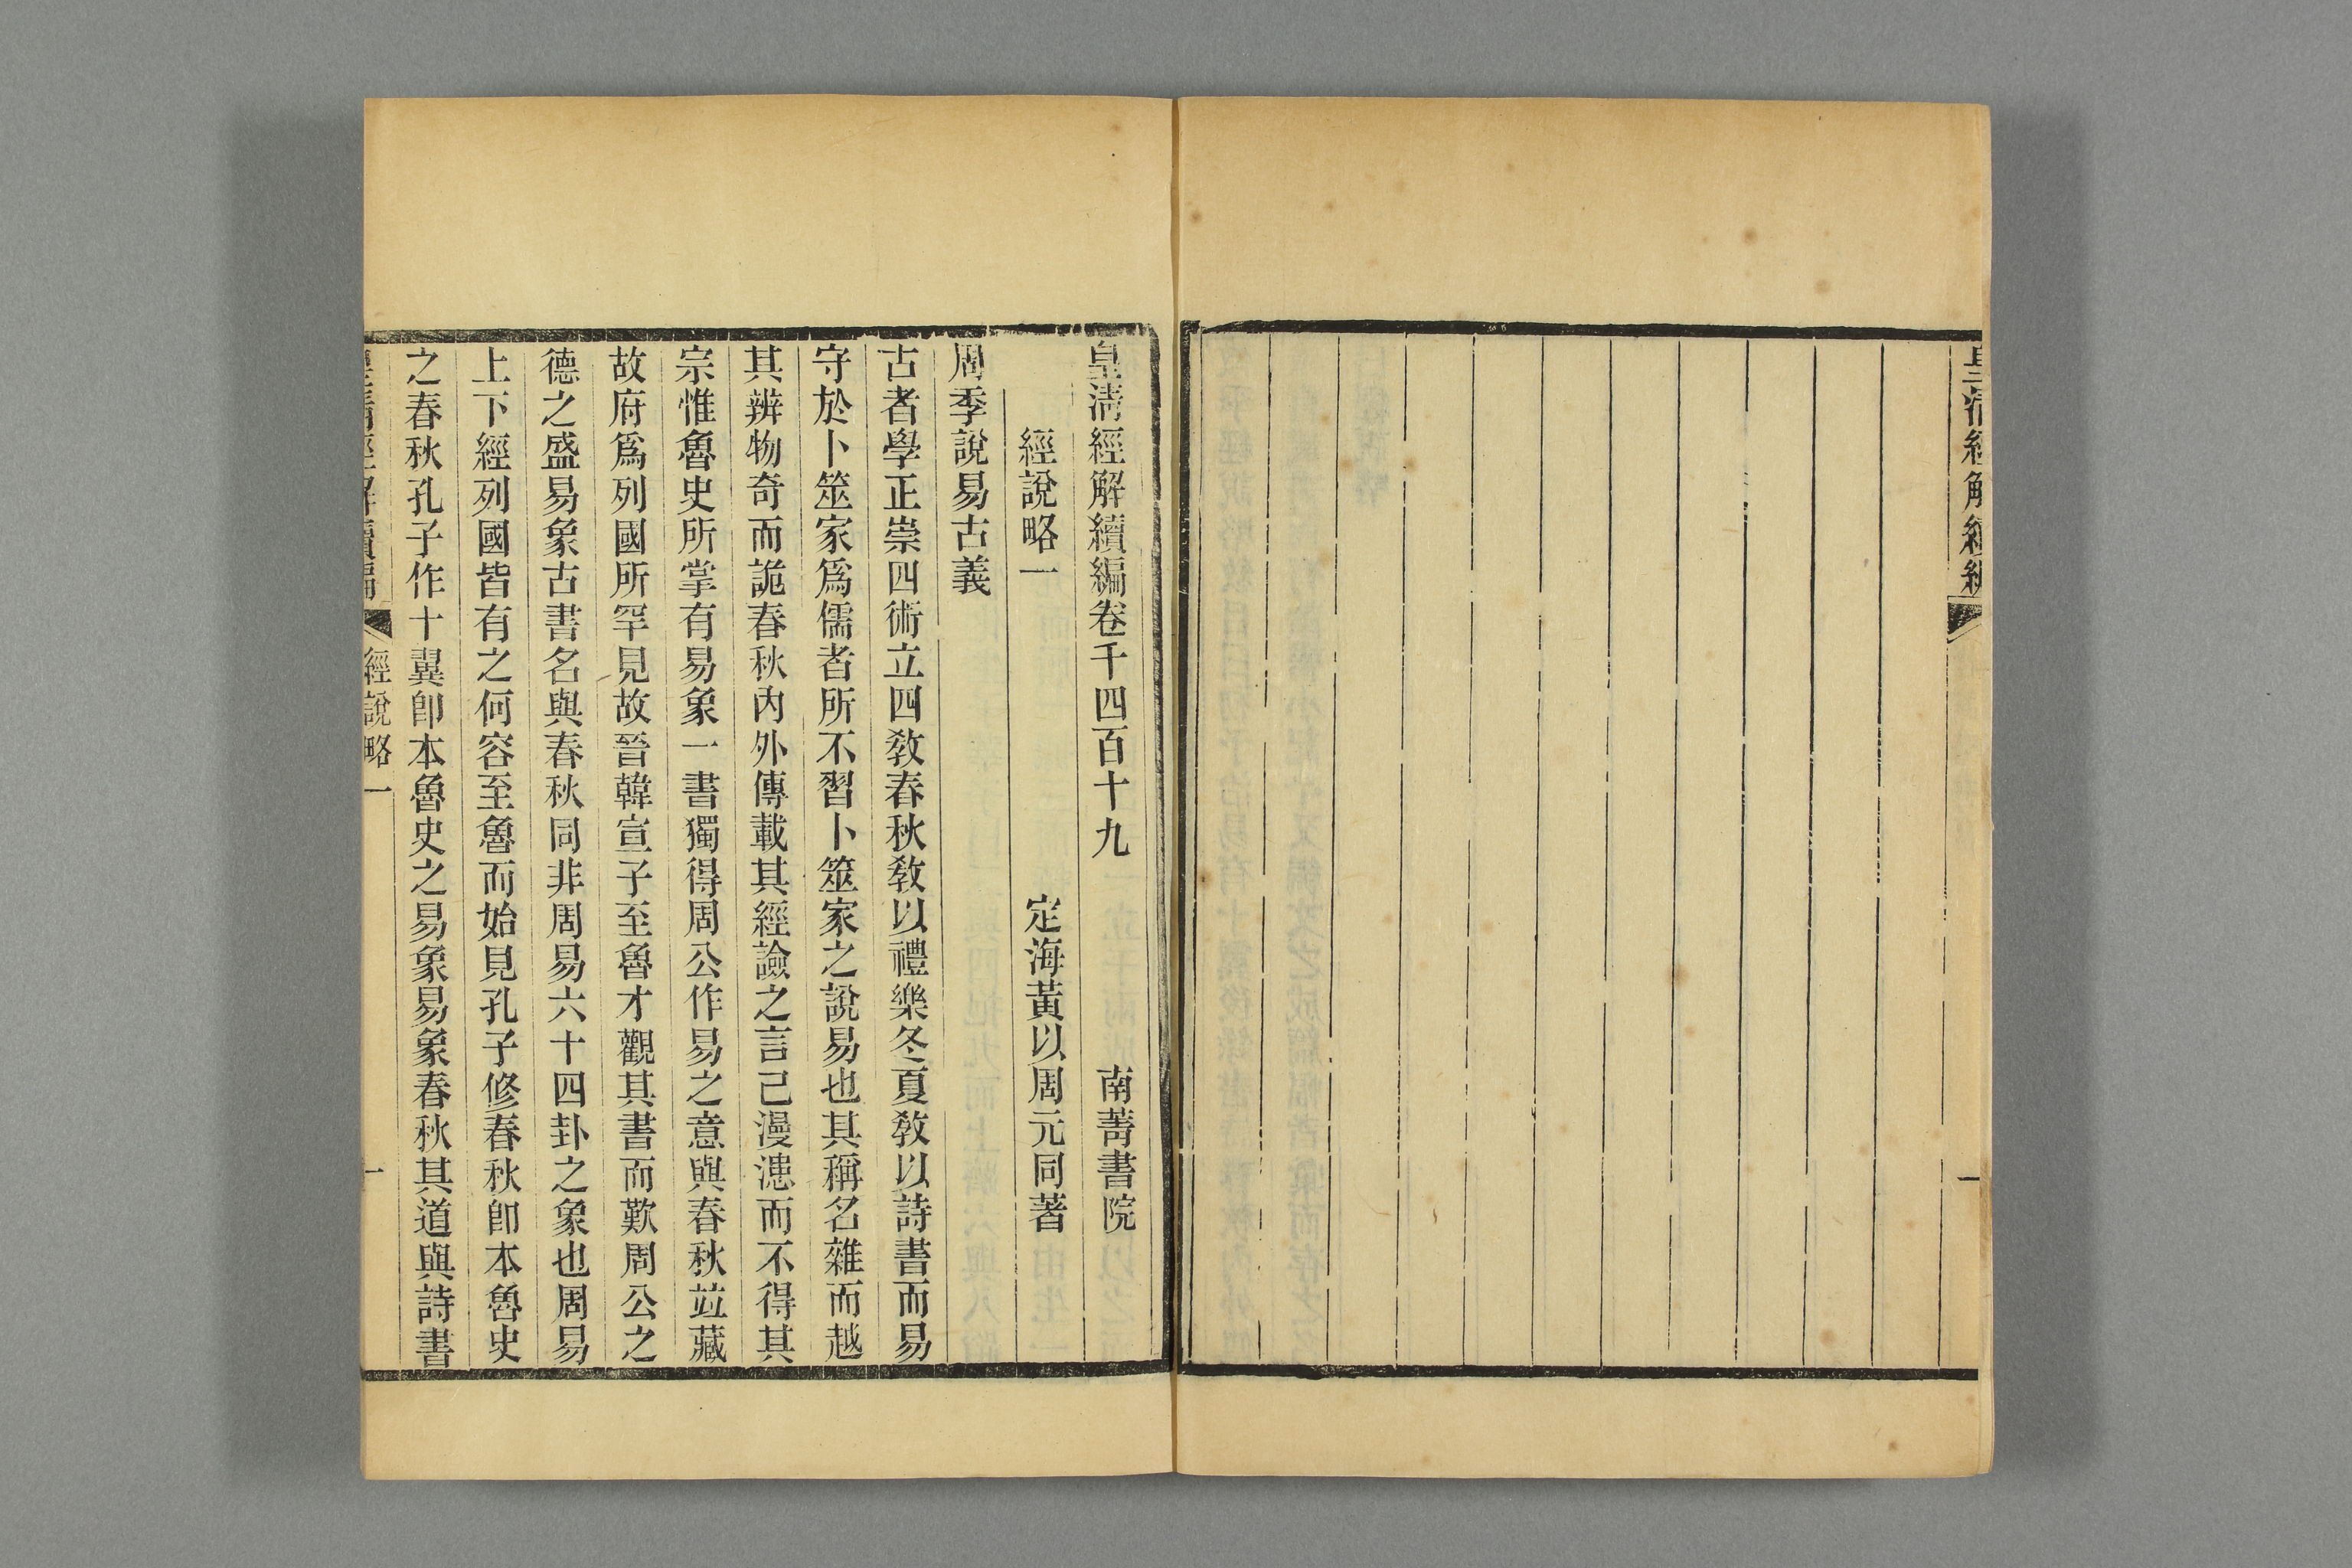 皇清經解續編
一
皇清經解續編卷千四百十九 南菁書院
經說略一 定海黃以周元同著
周季說易古義
古者學正崇四術立四敎春秋敎以禮樂冬夏敎以詩書而易
守於卜筮家爲儒者所不習卜筮家之說易也其稱名雜而越
其辨物奇而詭春秋內外傳載其經譣之言已漫漶而不得其
宗惟魯史所掌有易象一書獨得周公作易之意與春秋竝藏
故府爲列國所罕見故晉韓宣子至魯才觀其書而歎周公之
德之盛易象古書名與春秋同非周易六十四卦之象也周易
上下經列國皆有之何容至魯而始見孔子修春秋卽本魯史
之春秋孔子作十翼卽本魯史之易象易象春秋其道與詩書
皇清經解續編 經說略一 一